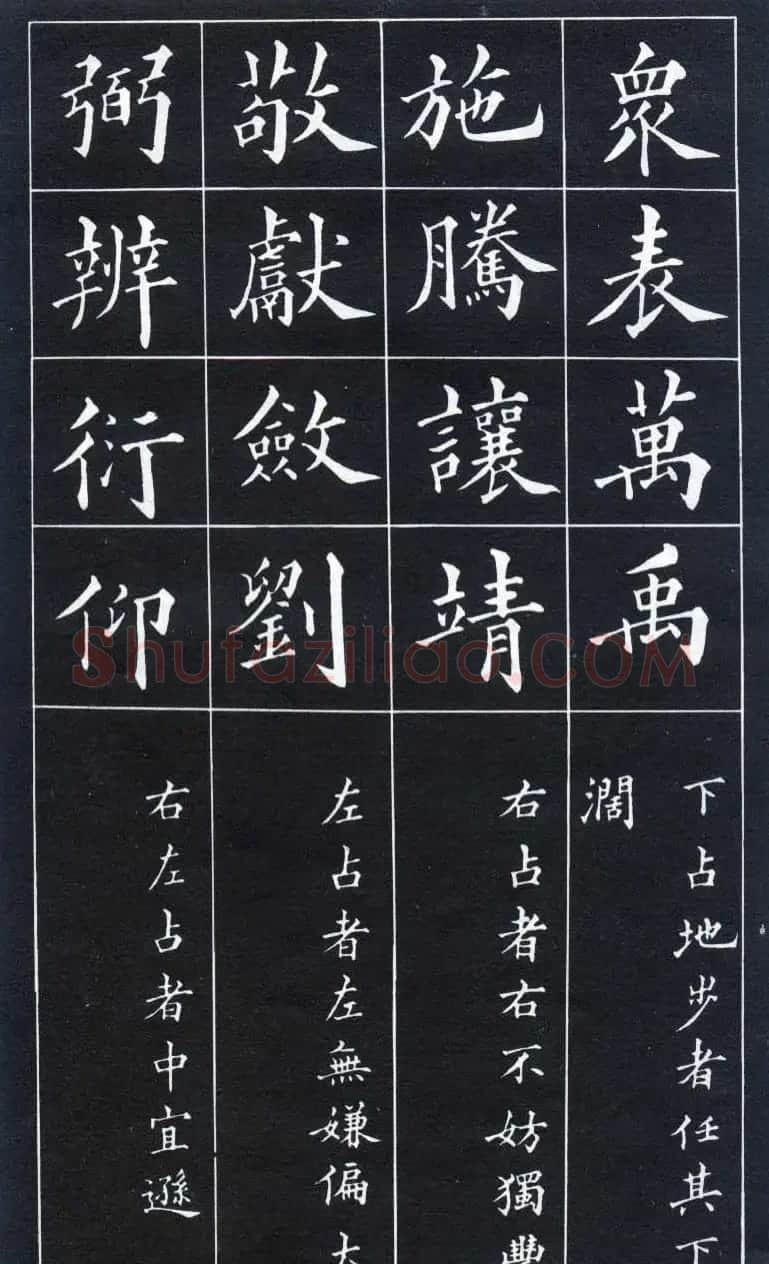 衆表萬禹
下占地步者任其下
濶
施騰讓靖
右占者右不妨獨豐
敬獻斂劉
左占者左無嫌偏大
弼辨衍仰
右左占者中宜遜
Shufaziliao.COM